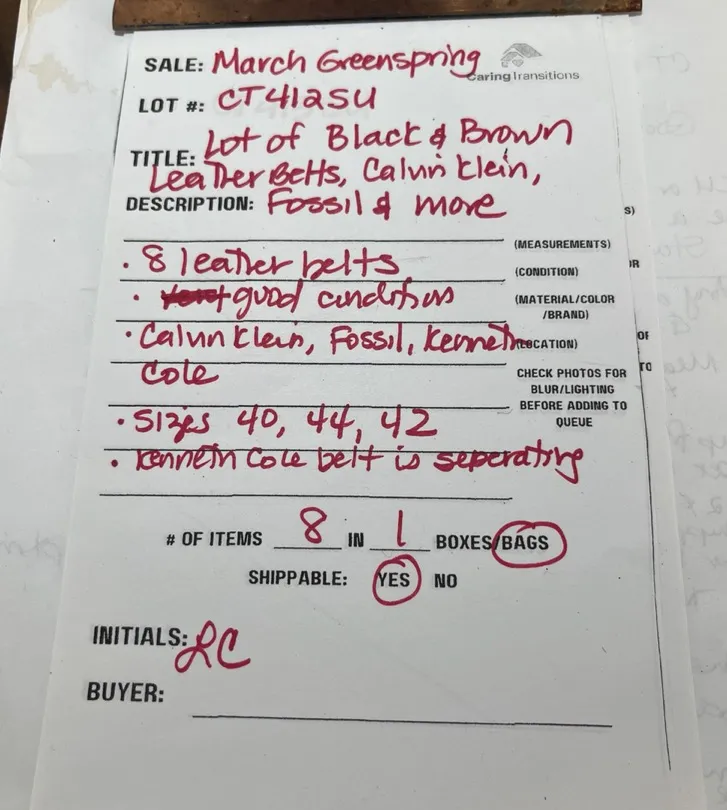 SALE: March Greenspring
Caring Transitions
LOT #: CT412SU
Lot of Black & Brown
TITLE: Leather Belts, Calvin Klein,
DESCRIPTION: Fossil & more
(MEASUREMENTS)
• 8 leather belts
(CONDITION)
• good condition
(MATERIAL/COLOR
/BRAND)
• Calvin Klein, Fossil, Kenneth
(LOCATION)
Cole
CHECK PHOTOS FOR
BLUR/LIGHTING
BEFORE ADDING TO
QUEUE
• Sizes 40, 44, 42
• Kenneth Cole belt is seperating
# OF ITEMS 8 IN 1 BOXES/BAGS
SHIPPABLE: YES NO
INITIALS: LC
BUYER:
S)
OR
OF
TO